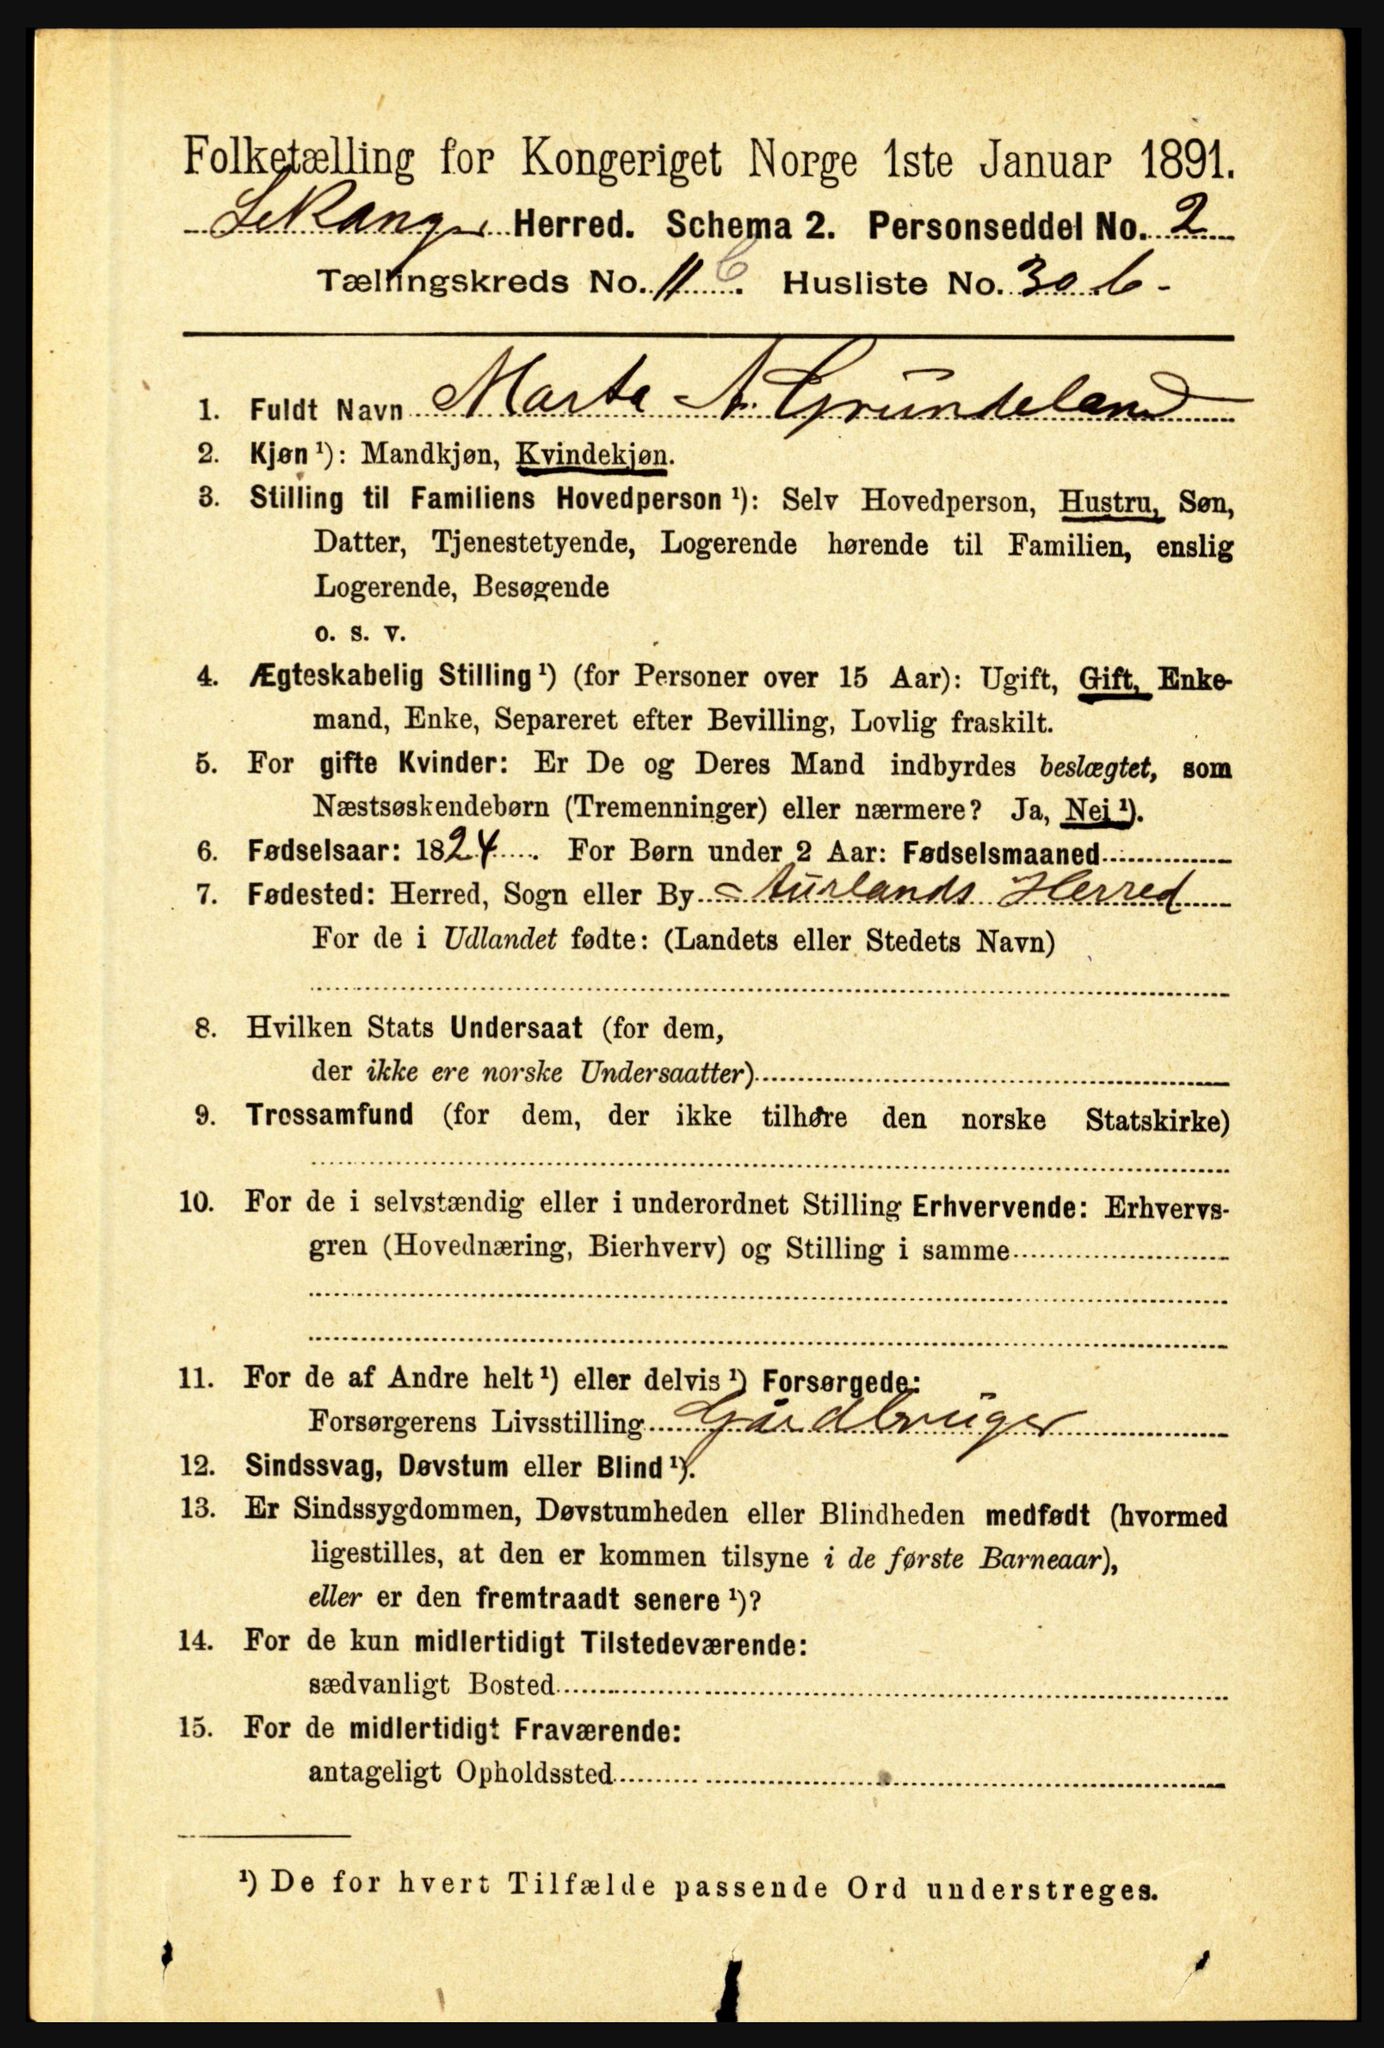 Folketælling for Kongeriget Norge 1ste Januar 1891.
Lekanger Herred. Schema 2. Personseddel No. 2
Tællingskreds No. 11 C. Husliste No. 30 b -
1. Fuldt Navn Marta A. Grundeland
2. Kjøn ¹): Mandkjøn, Kvindekjøn.
3. Stilling til Familiens Hovedperson ¹): Selv Hovedperson, Hustru, Søn,
Datter, Tjenestetyende, Logerende hørende til Familien, enslig
Logerende, Besøgende
o. s. v.
4. Ægteskabelig Stilling ¹) (for Personer over 15 Aar): Ugift, Gift, Enke-
mand, Enke, Separeret efter Bevilling, Lovlig fraskilt.
5. For gifte Kvinder: Er De og Deres Mand indbyrdes beslægtet, som
Næstsøskendebørn (Tremenninger) eller nærmere? Ja, Nei ¹).
6. Fødselsaar: 1824. For Børn under 2 Aar: Fødselsmaaned
7. Fødested: Herred, Sogn eller By Aurlands Herred
For de i Udlandet fødte: (Landets eller Stedets Navn)
8. Hvilken Stats Undersaat (for dem,
der ikke ere norske Undersaatter)
9. Trossamfund (for dem, der ikke tilhøre den norske Statskirke)
10. For de i selvstændig eller i underordnet Stilling Erhvervende: Erhvervs-
gren (Hovednæring, Bierhverv) og Stilling i samme
11. For de af Andre helt ¹) eller delvis ¹) Forsørgede:
Forsørgerens Livsstilling Gårdbruger
12. Sindssvag, Døvstum eller Blind ¹).
13. Er Sindssygdommen, Døvstumheden eller Blindheden medfødt (hvormed
ligestilles, at den er kommen tilsyne i de første Barneaar),
eller er den fremtraadt senere ¹)?
14. For de kun midlertidigt Tilstedeværende:
sædvanligt Bosted
15. For de midlertidigt Fraværende:
antageligt Opholdssted
¹) De for hvert Tilfælde passende Ord understreges.